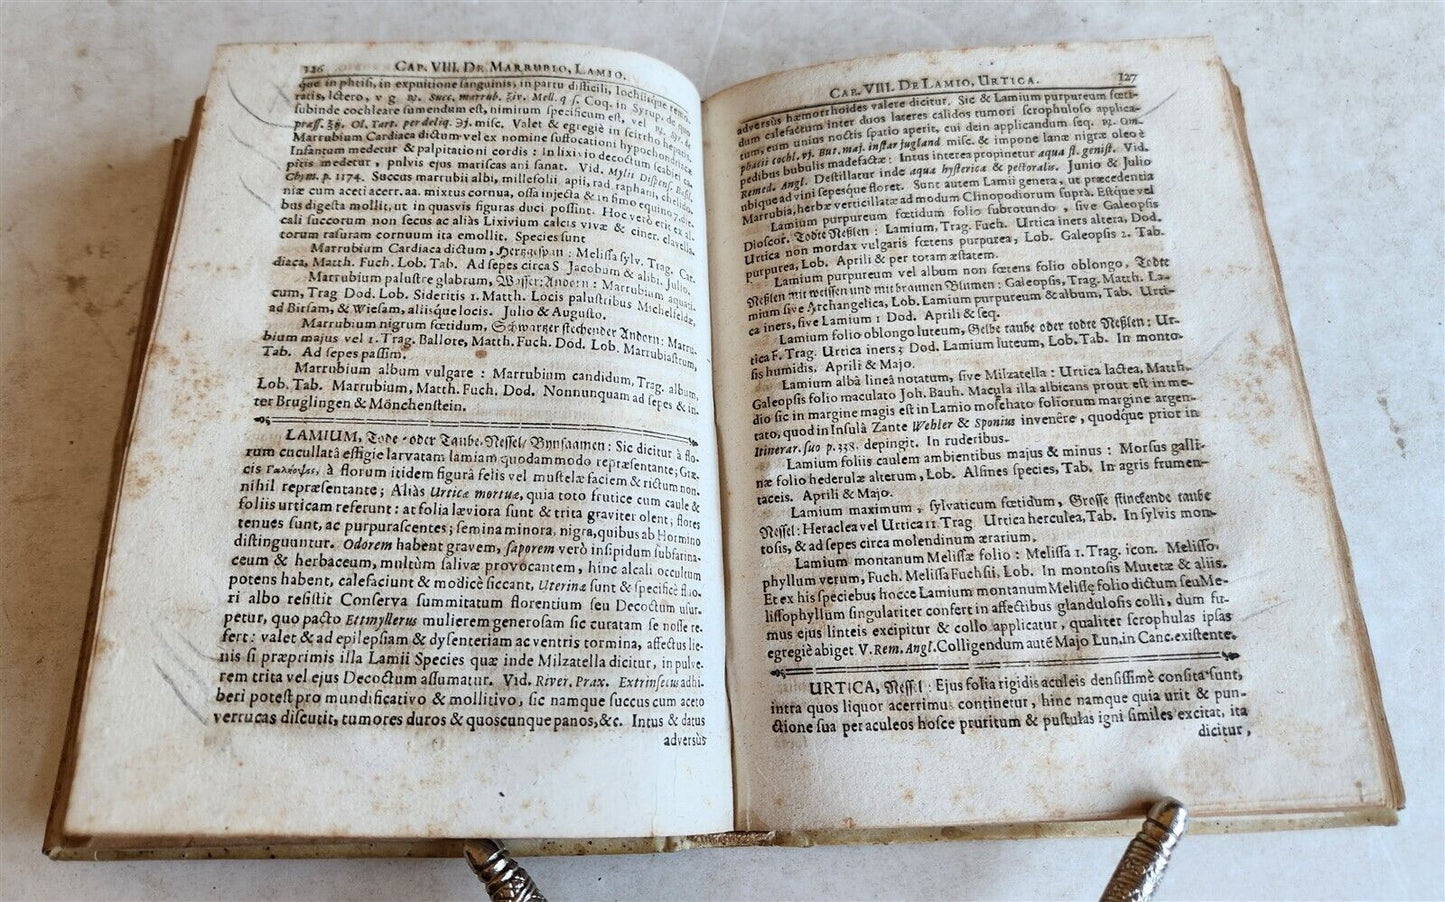 126 CAP. VIII. DE MARRUBIO, LAMIO.
que in phtisi, in expuitione sanguinis, in partu difficili, lochiisque remo-
ratis, Ictero, v g ꝶ. Succ. marrub. ℥iv. Mell. q s. Coq. in Syrup. de quo
subinde cochleare sumendum est, nimirum specificum est, vel
Ol. Tart. per deliq. misc. Valet & egregiè in scirrho hepatis.
Marrubium Cardiaca dictum vel ex nomine suffocationi hypochondriacæ
Infantum medetur & palpitationi cordis: In lixivio decoctum scabiei ca-
pitis medetur, pulvis ejus mariscas ani sanat. Vid. Mylii Dispens. Bas.
Chym. p. 1174. Succus marrubii albi, millefolii, apii, rad. raphani, chelido-
niæ cum aceti acerr. aa. mixtus cornua, ossa injecta & in fimo equino 7. die-
bus digesta mollit, ut in quasvis figuras duci possint. Hoc verò erit ex al-
cali succorum non secus ac aliàs Lixivium calcis vivæ & ciner. clavella-
torum rasuram cornuum ita emollit. Species sunt
Marrubium Cardiaca dictum, Hertzgespan: Melissa sylv. Trag. Car-
diaca, Matth. Fuch. Lob. Tab. Ad sepes circa S. Jacobum & alibi. Julio,
Marrubium palustre glabrum, Wasser-Andorn: Marrubium aquati-
cum, Trag Dod. Lob. Sideritis 1. Matth. Locis palustribus Michelfeldæ,
ad Birsam, & Wiesam, aliisque locis. Julio & Augusto.
Marrubium nigrum fœtidum, Schwarzer stechender Andorn: Marru-
bium majus vel 1. Trag. Ballote, Matth. Fuch. Dod. Lob. Marrubiastrum,
Tab. Ad sepes passim.
Marrubium album vulgare: Marrubium candidum, Trag. album,
Lob. Tab. Marrubium, Matth. Fuch. Dod. Nonnunquam ad sepes & in-
ter Bruglingen & Mönchenstein.
LAMIUM, Tode- oder Taube-Nessel/ Bynsaamen: Sic dicitur à flo-
rum cucullata effigie larvatam lamiam quodammodo repræsentante; Græ-
cis Γαλιοψις, à florum itidem figurâ felis vel mustelæ faciem & rictum non-
nihil repræsentante; Aliàs Urticæ mortuæ, quia toto frutice cum caule &
foliis urticam referunt: at folia læviora sunt & trita graviter olent; flores
tenues sunt, ac purpurascentes; semina minora, nigra, quibus ab Hormino
distinguuntur. Odorem habent gravem, saporem verò insipidum subfarina-
ceum & herbaceum, multùm salivæ provocantem, hinc alcali occultum
potens habent, calefaciunt & modicè siccant, Uterinæ sunt & specificè fluo-
ri albo resistit Conserva summitatum florentium seu Decoctum usur-
petur, quo pacto Ettmyllerus mulierem generosam sic curatam se nosse re-
fert: valet & ad epilepsiam & dysenteriam ac ventris tormina, affectus lie-
nis si præprimis illa Lamii Species quæ inde Milzatella dicitur, in pulve-
rem trita vel ejus Decoctum assumatur. Vid. River. Prax. Extrinsecus adhi-
beri potest pro mundificativo & mollitivo, sic namque succus cum aceto
verrucas discutit, tumores duros & quoscunque panos, &c. Intus & datus
adversùs
CAP. VIII. DE LAMIO, URTICA. 127
adversùs hæmorrhoides valere dicitur. Sic & Lamium purpureum fœti-
dum calefactum inter duos lateres calidos tumori scrophuloso applica-
tum, eum unius noctis spatio aperit, cui dein applicandum seq. ꝶ. Om-
phacii cochl. vj. But. maj. instar jugland misc. & impone lanæ nigræ oleo è
pedibus bubulis madefactæ: Intus interea propinetur aqua fl. genist. Vid.
Remed. Angl. Destillatur inde aqua hysterica & pectoralis. Junio & Julio
ubique ad vini sepesque floret. Sunt autem Lamii genera, ut præcedentia
Marrubia, herbæ verticillatæ ad modum Clinopodiorum suprà. Estque vel
Lamium purpureum fœtidum folio subrotundo, sive Galeopsis
Dioscor. Todte Neßlen: Lamium, Trag. Fuch. Urtica iners altera, Dod.
Urtica non mordax vulgaris fœtens purpurea, Lob. Galeopsis 2. Tab.
purpurea, Lob. Aprili & per totam æstatem.
Lamium purpureum vel album non fœtens folio oblongo, Todte
Neßlen mit weissen und mit braunen Blumen: Galeopsis, Trag. Matth. La-
mium sive Archangelica, Lob. Lamium purpureum & album, Tab. Urti-
ca iners, sive Lamium 1 Dod. Aprili & seq.
Lamium folio oblongo luteum, Gelbe taube oder todte Neßlen: Ur-
tica F. Trag. Urtica iners 3 Dod. Lamium luteum, Lob. Tab. In monto-
sis humidis. Aprili & Majo.
Lamium albâ lineâ notatum, sive Milzatella: Urtica lactea, Matth.
Galeopsis folio maculato Joh. Bauh. Macula illa albicans prout est in me-
dio sic in margine magis est in Lamio moschato foliorum margine argen-
tato, quod in Insulâ Zante Wehler & Sponius invenêre, quodque prior in
Itinerar. suo p. 338. depingit. In ruderibus.
Lamium foliis caulem ambientibus majus & minus: Morsus galli-
næ folio hederulæ alterum, Lob. Alsines species, Tab. In agris frumen-
taceis. Aprili & Majo.
Lamium maximum, sylvaticum fœtidum, Grosse stinckende taube
Nessel: Heraclea vel Urtica 11. Trag Urtica herculea, Tab. In sylvis mon-
tosis, & ad sepes circa molendinum ærarium.
Lamium montanum Melissæ folio: Melissa 1. Trag. icon. Melisso-
phyllum verum, Fuch. Melissa Fuchsii, Lob. In montosis Mutetæ & aliis.
Et ex his speciebus hocce Lamium montanum Melissæ folio dictum seu Me-
lissophyllum singulariter confert in affectibus glandulosis colli, dum fu-
mus ejus linteis excipitur & collo applicatur, qualiter scrophulas ipsas
egregiè abiget V. Rem. Angl. Colligendum autē Majo Lun. in Canc. existente.
URTICA, Nessel: Ejus folia rigidis aculeis densissimè consita sunt,
intra quos liquor acerrimus continetur, hinc namque quia urit & pun-
ctione sua per aculeos hosce pruritum & pustulas igni similes excitat, ita
dicitur,